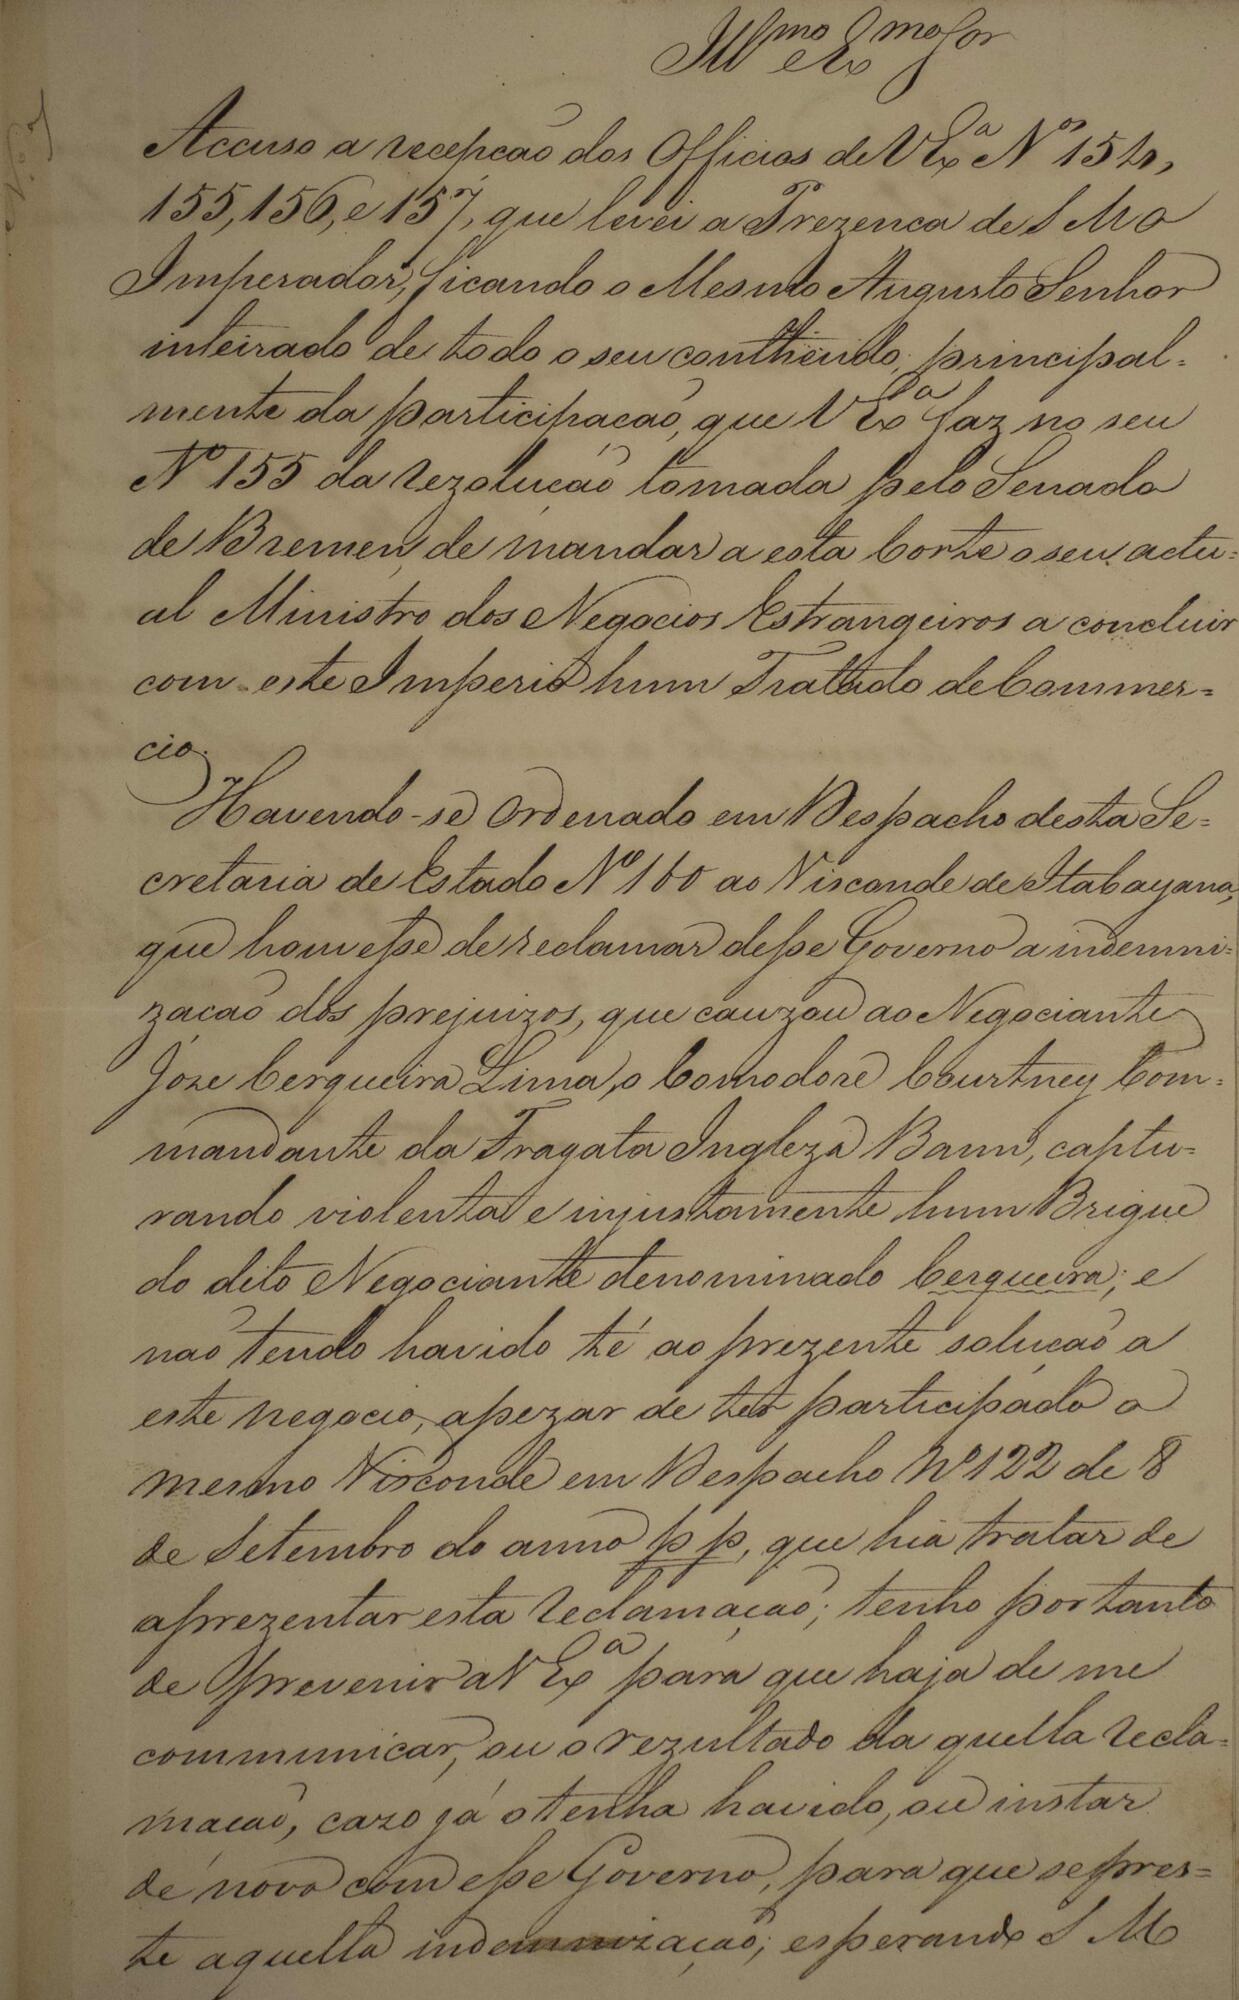 Illmo e Exmo Sor
Accuso a recepcaõ dos Officios de V Exa Nos 154,
155, 156, e 157, que levei a Prezenca de S M O
Imperador, ficando o Mesmo Augusto Senhor
inteirado de todo o seu conthiendo, principal=
mente da participacaõ, que V Exa faz no seu
No 155 da rezolução tomada pelo Senado
de Bremen, de mandar a esta Corte o seu actu=
al Ministro dos Negocios Estrangeiros a concluir
com este Imperio hum Trattado de Commer=
cio.
Havendo-se Ordenado em Despacho desta Se=
cretaria de Estado No 160 ao Visconde de Itabayana,
que houvesse de reclamar desse Governo a indemni=
zacaõ dos prejuizos, que cauzou ao Negociante
Józe Cerqueira Lima, o Comodore Courtney Com=
mandante da Fragata Ingleza Bann, captu=
rando violenta e injustamente hum Brigue
do dito Negociante denominado Cerqueira; e
naõ tendo havido té ao prezente soluçaõ a
este negocio, apezar de ter participado o
mesmo Visconde em Despacho No 122 de 8
de Setembro do anno pp, que hia tratar de
aprezentar esta reclamaçaõ; tenho portanto
de prevenir a V Exa para que haja de me
communicar, ou o rezultado da quella recla=
macaõ, cazo já o tenha havido, ou instar
de novo com esse Governo, para que se pres=
te aquella indemnizaçaõ; esperando S M